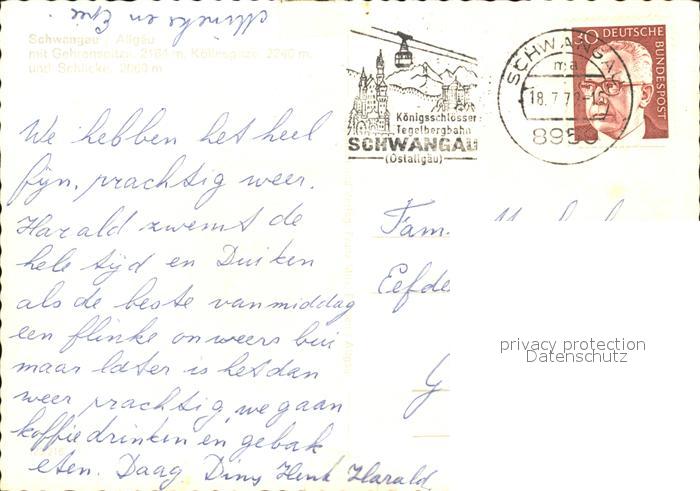 Schwangau / Allgäu
mit Gehrenspitze, 2164 m, Köllespitze 2240 m,
und Schlicke, 2060 m
We hebben het heel
fijn, prachtig weer.
Harald zwemt de
hele tijd en Duiken
als de beste vanmiddag
een flinke onweers bui
maar later is het dan
weer prachtig, we gaan
koffie drinken en gebak
eten. Daag. Diny Henk Harald
Königsschlösser
Tegelbergbahn
SCHWANGAU
(Ostallgäu)
SCHWANGAU
18.7.7
8959
30 DEUTSCHE
BUNDESPOST
Fam.
privacy protection
Datenschutz